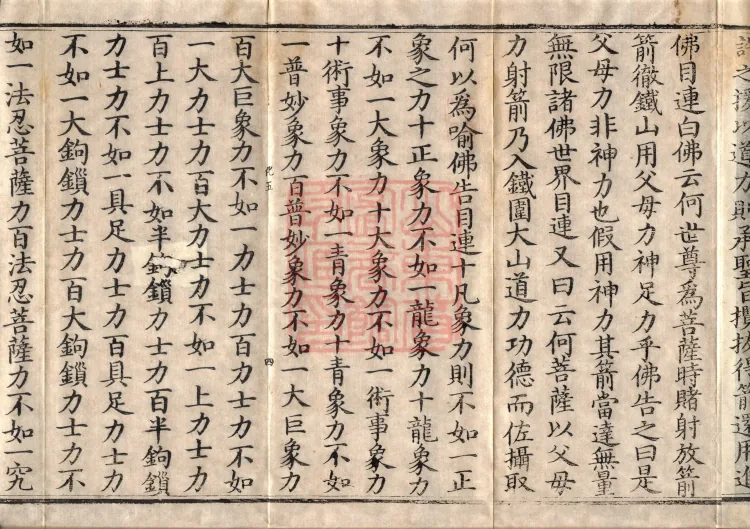 道力則承聖旨攬拔得箭還用道
佛目連白佛云何世尊為菩薩時賭射放箭
箭徹鐵山用父母力神足力乎佛告之曰是
父母力非神力也假用神力其箭當達無量
無限諸佛世界目連又曰云何菩薩以父母
力射箭乃入鐵圍大山道力功德而佐攝取
何以為喻佛告目連十凡象力則不如一正
象之力十正象力不如一龍象力十龍象力
不如一大象力十大象力不如一術事象力
十術事象力不如一青象力十青象力不如
一普妙象力百普妙象力不如一大巨象力
化五
四
百大巨象力不如一力士力百力士力不如
一大力士力百大力士力不如一上力士力
百上力士力不如半鉤鎖力士力百半鉤鎖
力士力不如一具足力士力百具足力士力
不如一大鉤鎖力士力百大鉤鎖力士力不
如一法忍菩薩力百法忍菩薩力不如一究